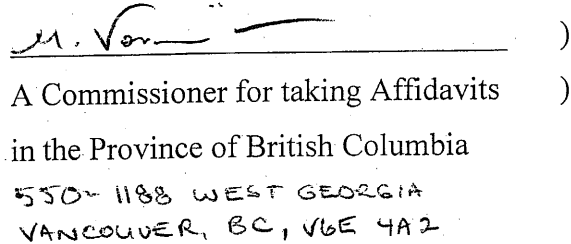 M. )
A Commissioner for taking Affidavits )
in the Province of British Columbia
550 - 1188 WEST GEORGIA
VANCOUVER, BC, V6E 4A2